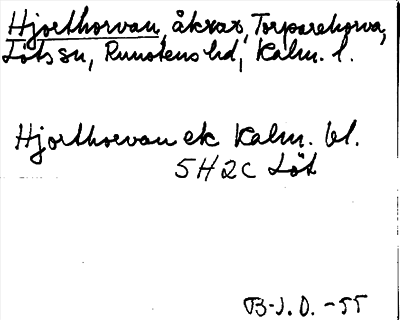 Hjorthorvan, åkrar, Torparehorva,
Löts sn, Runstens hd, Kalm. l.
Hjorthorvan ek Kalm. bl.
5H2C Löt
B-J.O. -55